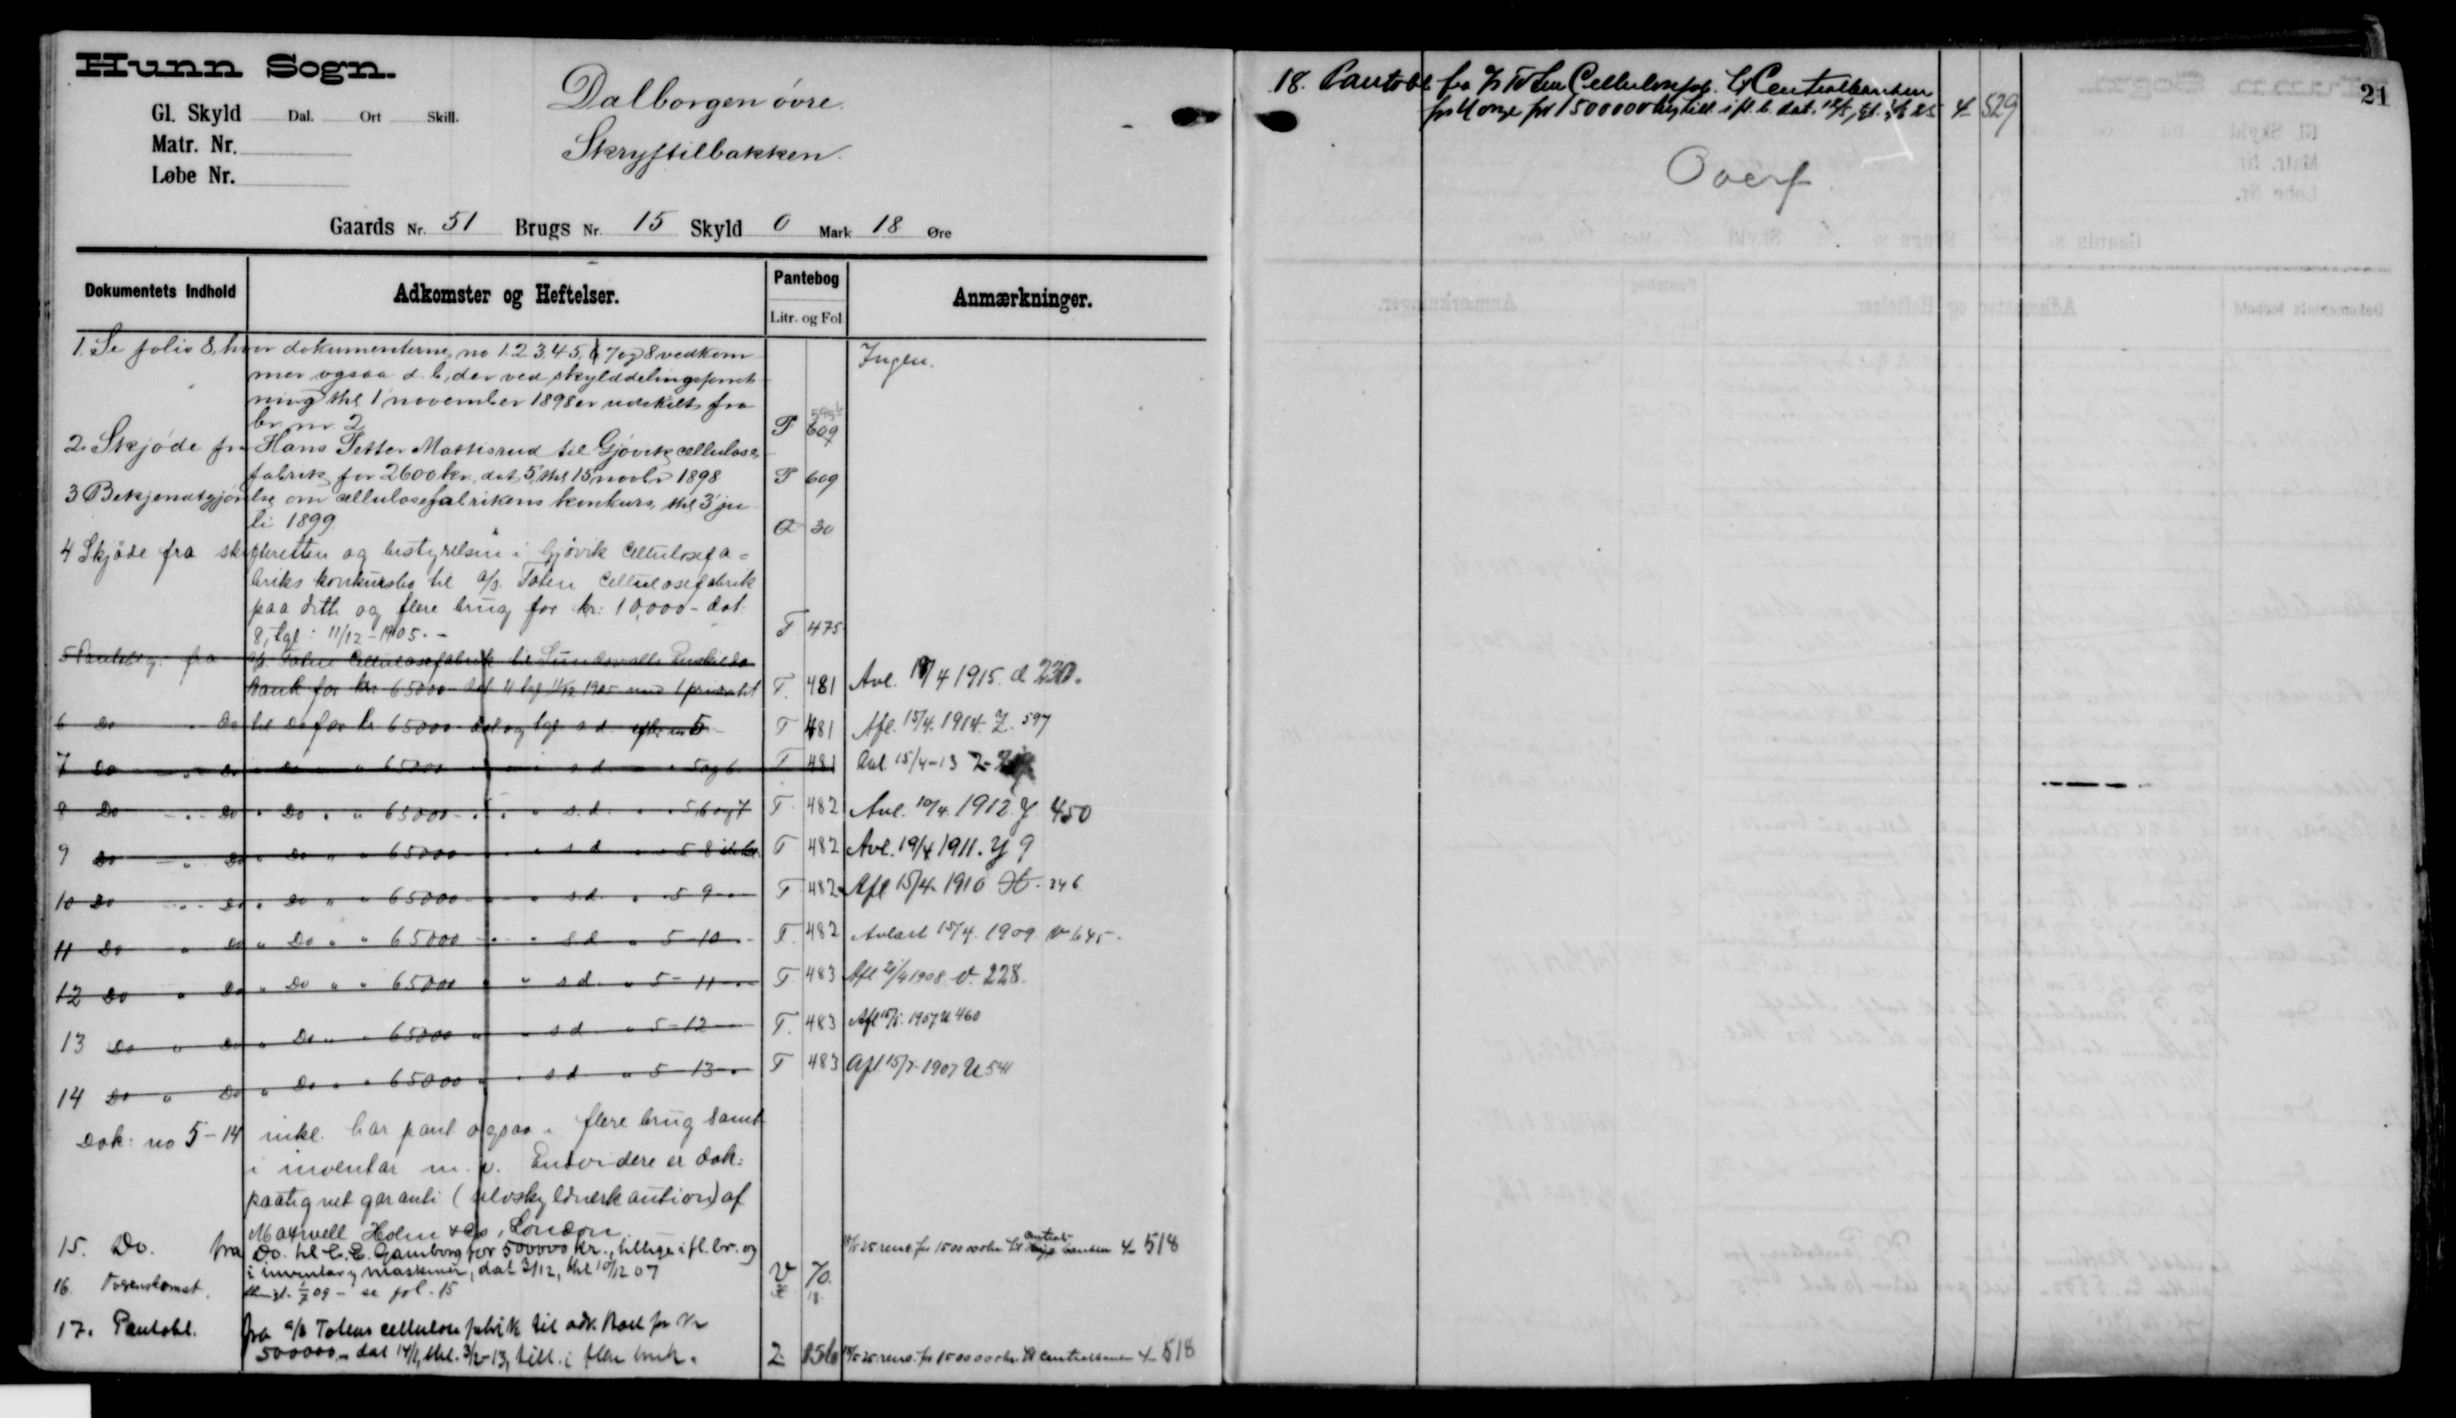 Hunn Sogn.
Gl. Skyld Dal. Ort Skill.
Matr. Nr.
Løbe Nr.
Dalborgen övre.
Skryftilbakken.
Gaards Nr. 51 Brugs Nr. 15 Skyld 0 Mark 18 Øre
Dokumentets Indhold
Adkomster og Heftelser.
Pantebog
Litr. og Fol
Anmærkninger.
1. Se folio 8, hvor dokumenterne no 1.2.3.4.5.6 7 og 8 vedkom Ingen.
mer ogsaa d. b, der ved skylddelingsforret
ning thl 1 november 1898 er udskilt fra
br nr 2 P 609
2. Skjöde fra Hans Petter Mattisrud til Gjövik cellulose
fabrik for 2600 kr. dat 5, thl 15 novbr 1898 P 609
3 Bekjendtgjörelse om cellulosefabrikens konkurs, thl 3 ju
li 1899. Q 30
4 Skjöde fra skifteretten og bestyrelsen i Gjövik Cellulosefa=
briks konkursbo til a/s. Toten Cellulosefabrik
paa dette og flere brug for kr: 10,000 - dat.
8, tgl: 11/12 - 1905. - T. 475
5 Panteblg. fra a/s. Toten Cellulosefabrik til Sundsvalls Enskilda
Bank for kr. 65000 - dat 11 tgl 11/12 1905 med 1 prioritet T. 481 Avl. 19/4 1915. d 230.
6 Do " Do til Do for kr 65000 dat. og tgl. s.d. efter no 5 T 481 Afl. 15/4. 1914. Z. 597
7 Do " Do " Do " " 65000 " " s.d. " " 5 og 6 T 481 Avl 15/4-13 Z
8 Do " Do " Do " " 65000 - " " s.d. " " 5 6 og 7 T. 482 Avl. 10/4. 1912. Y 450
9 Do " Do " Do " " 65000 " " s.d " " 5 8 T 482 Avl. 19/4 1911. Y 9
10 Do " Do " Do " " 65000 " " s.d. " " 5 9 T. 482 Afl 15/4. 1910 346
11 Do " Do " Do " " 65000 " " s.d " 5-10 T. 482 Avlæst 15/4. 1909. V 645.
12 Do " Do " Do " " 65000 " " s.d. " 5-11 T. 483 Afl. 21/4 1908. V. 228.
13 Do " Do " Do " " 65000 " " s.d " 5-12 T. 483 Afl 1907 U 460
14 Do " Do " Do " " 65000 " " s.d. " 5-13 T 483 Afl 15/7-1907 U 541
Dok: no 5-14 inkl. har pant ogsaa i flere brug samt
i inventar m. v. Endvidere er dok:
paategnet garanti (selvskyldnerkaution) af
Maxwell Holm & Co, London.
15. Do. fra Do. til C. E. Gamborg for 500000 kr., tillige i fl. br. og
i inventar og maskiner, dat 3/12, thl 10/12 07 V 70. 25 renc for 1500000 kr til Centralbanken 4 518
16. Overenskomst. 09 - se fol. 15 18
17. Pantobl. fra a/s Totens cellulose fabrik til adv. for kr
500000 - dat 14/1, thl. 3/2-13, till. i flere bruk. Z 156 25 renc. for 1500000 kr. til Centralbanken 4 518
21
18. Pantobl fra a/s Toten Cellulosefab. til Centralbanken
for Norge for 1500000 kr, till. i fl. b. dat. 4 529
Overf